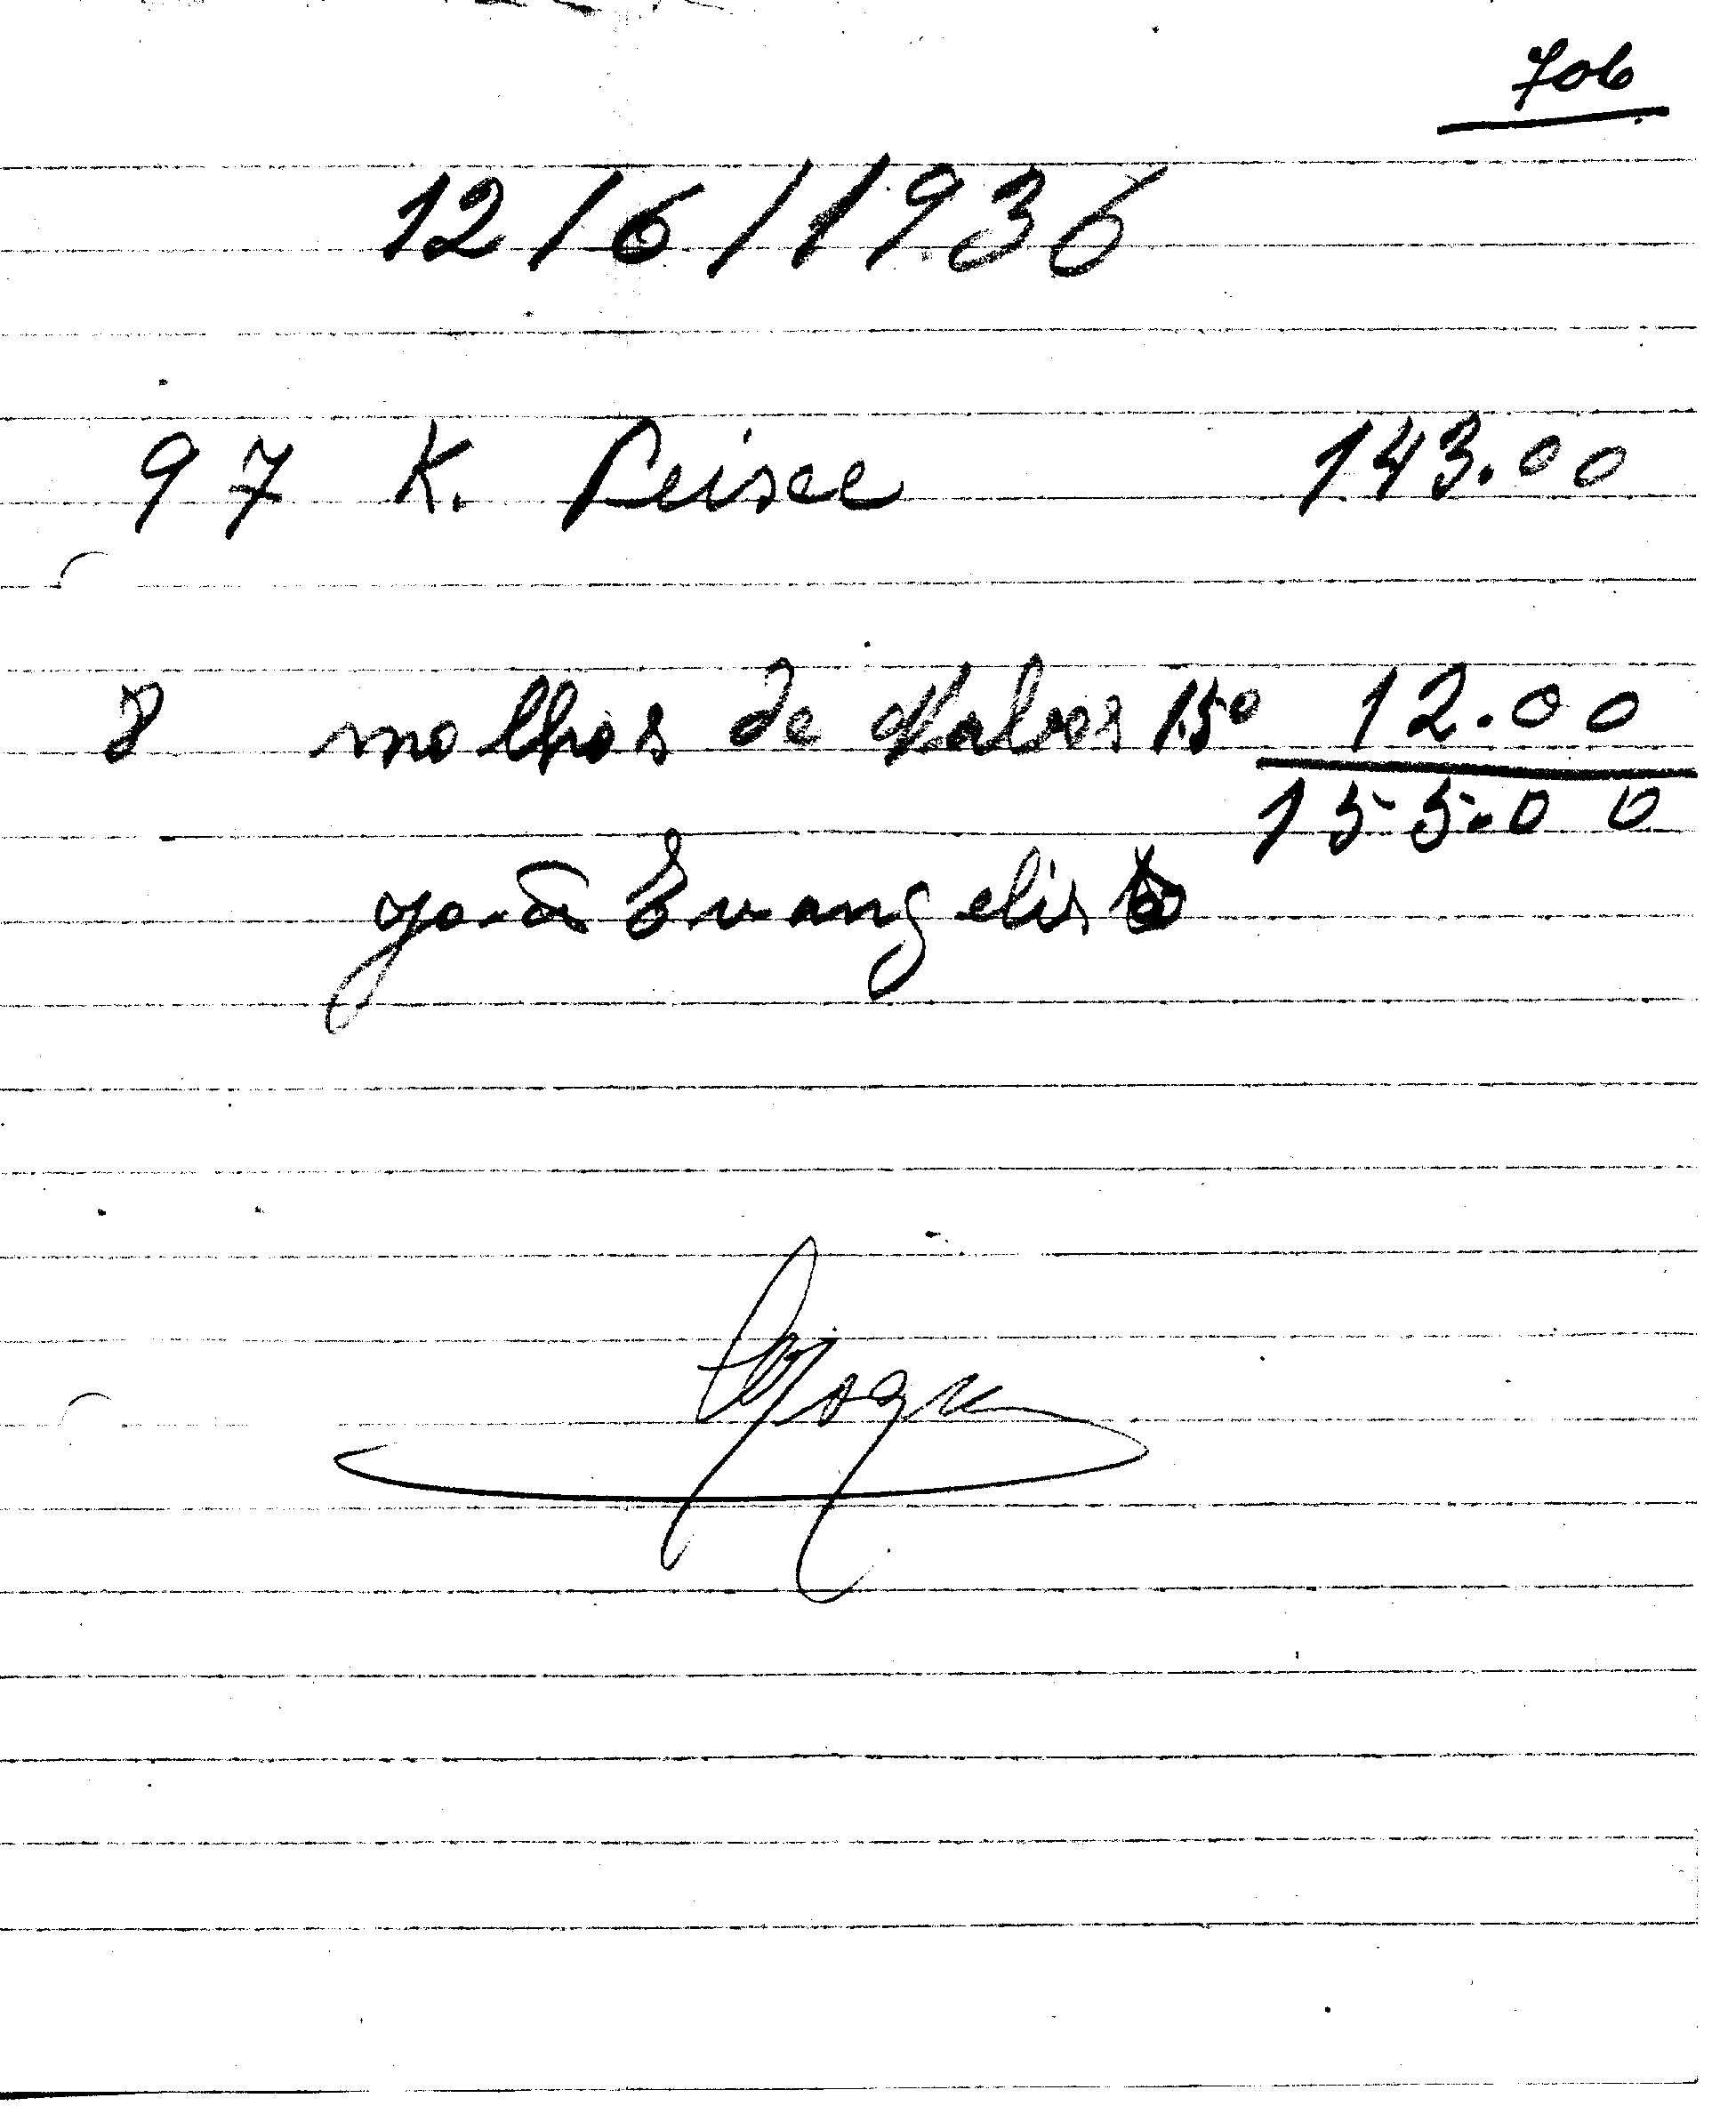 706
12/6/1936
97 K. Peisce 143.00
8 molhos de 150 12.00
155.00
João Evangelisto